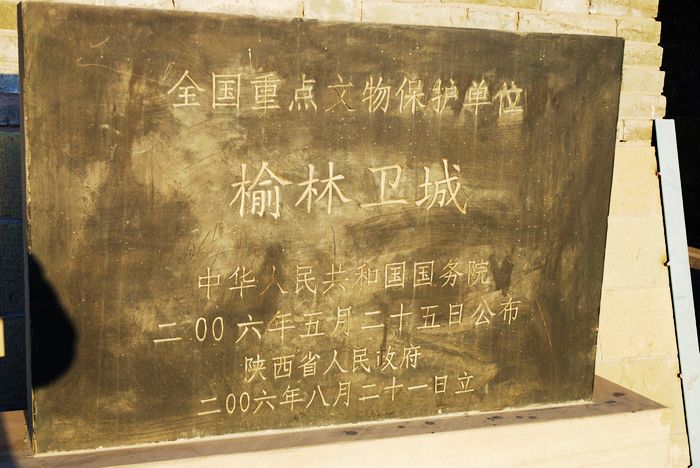 全国重点文物保护单位
榆林卫城
中华人民共和国国务院
二00六年五月二十五日公布
陕西省人民政府
二00六年八月二十一日立